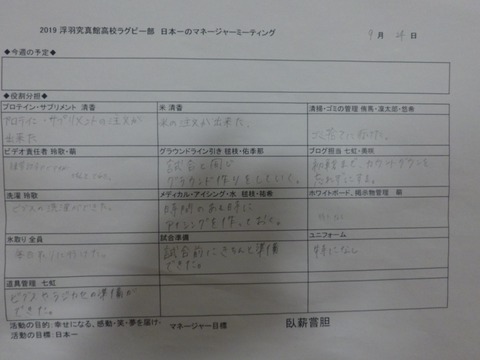 2019 浮羽究真館高校ラグビー部 日本一のマネージャーミーティング
9月 日
◆今週の予定◆
◆役割分担◆
プロテイン・サプリメント 清香
米 清香
清掃・ゴミの管理 侑馬・凜太郎・悠希
プロテイン・サプリメントの注文が
出来た
米の注文が出来た。
ゴミ捨てに行けた。
ビデオ責任者 玲歌・萌
グラウンドライン引き 毬枝・佑季節
ブログ担当 七虹・美咲
試合と同じ
グラウンド作りをしていく。
初戦まで、カウントダウンを
忘れずにする。
洗濯 玲歌
メディカル・アイシング・水 毬枝・祐希
ホワイトボード、掲示物管理 萌
ビブスの洗濯ができた。
時間のある時に
アイシングを作っておく。
氷取り 全員
試合準備
ユニフォーム
試合前にきちんと準備
できた。
特になし
道具管理 七虹
ビブスやラジカセの準備が
できた。
活動の目的: 幸せになる、感動・笑・夢を届け・
マネージャー目標
臥薪嘗胆
活動の目標:日本一